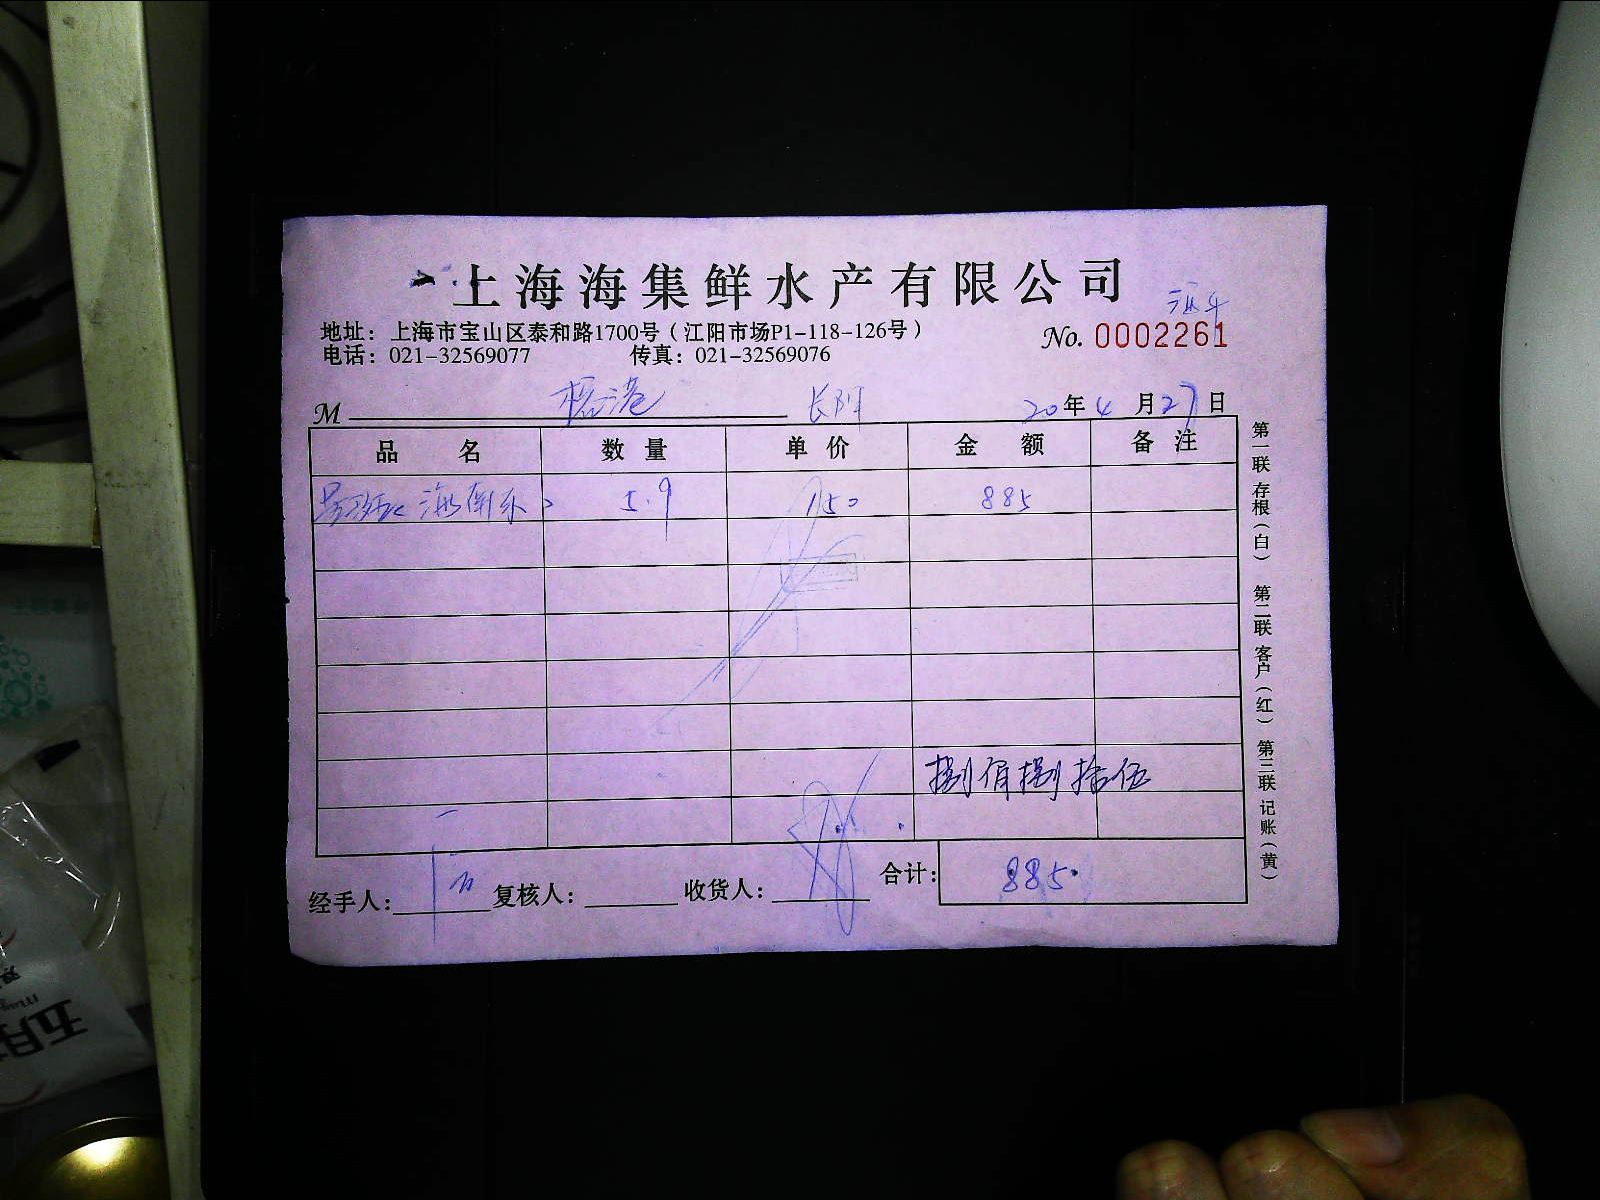 上海海集鲜水产有限公司
地址：上海市宝山区泰和路1700号（江阳市场P1-118-126号）
No. 0002261
电话：021-32569077 传真：021-32569076
M 20年4月27日
品名 数量 单价 金额 备注
5.9 150 885
捌佰捌拾伍
合计： 885.
经手人： 复核人： 收货人：
第一联 存根（白） 第二联 客户（红） 第三联 记账（黄）